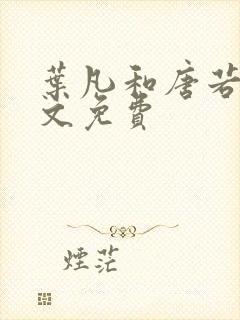 葉凡和唐若
文免費
煙茫